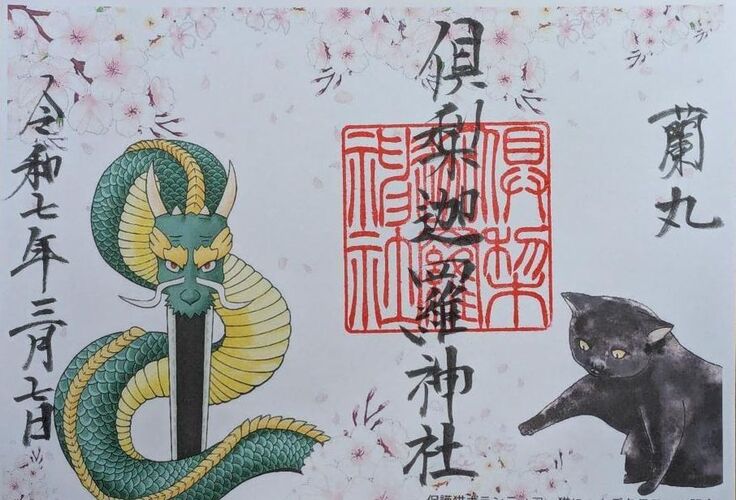 蘭丸
倶梨迦羅神社
令和七年三月七日
倶梨
迦羅
神社